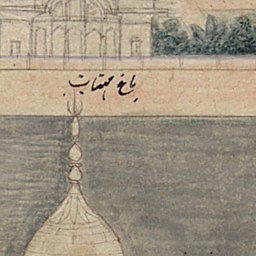 باغ مهتاب